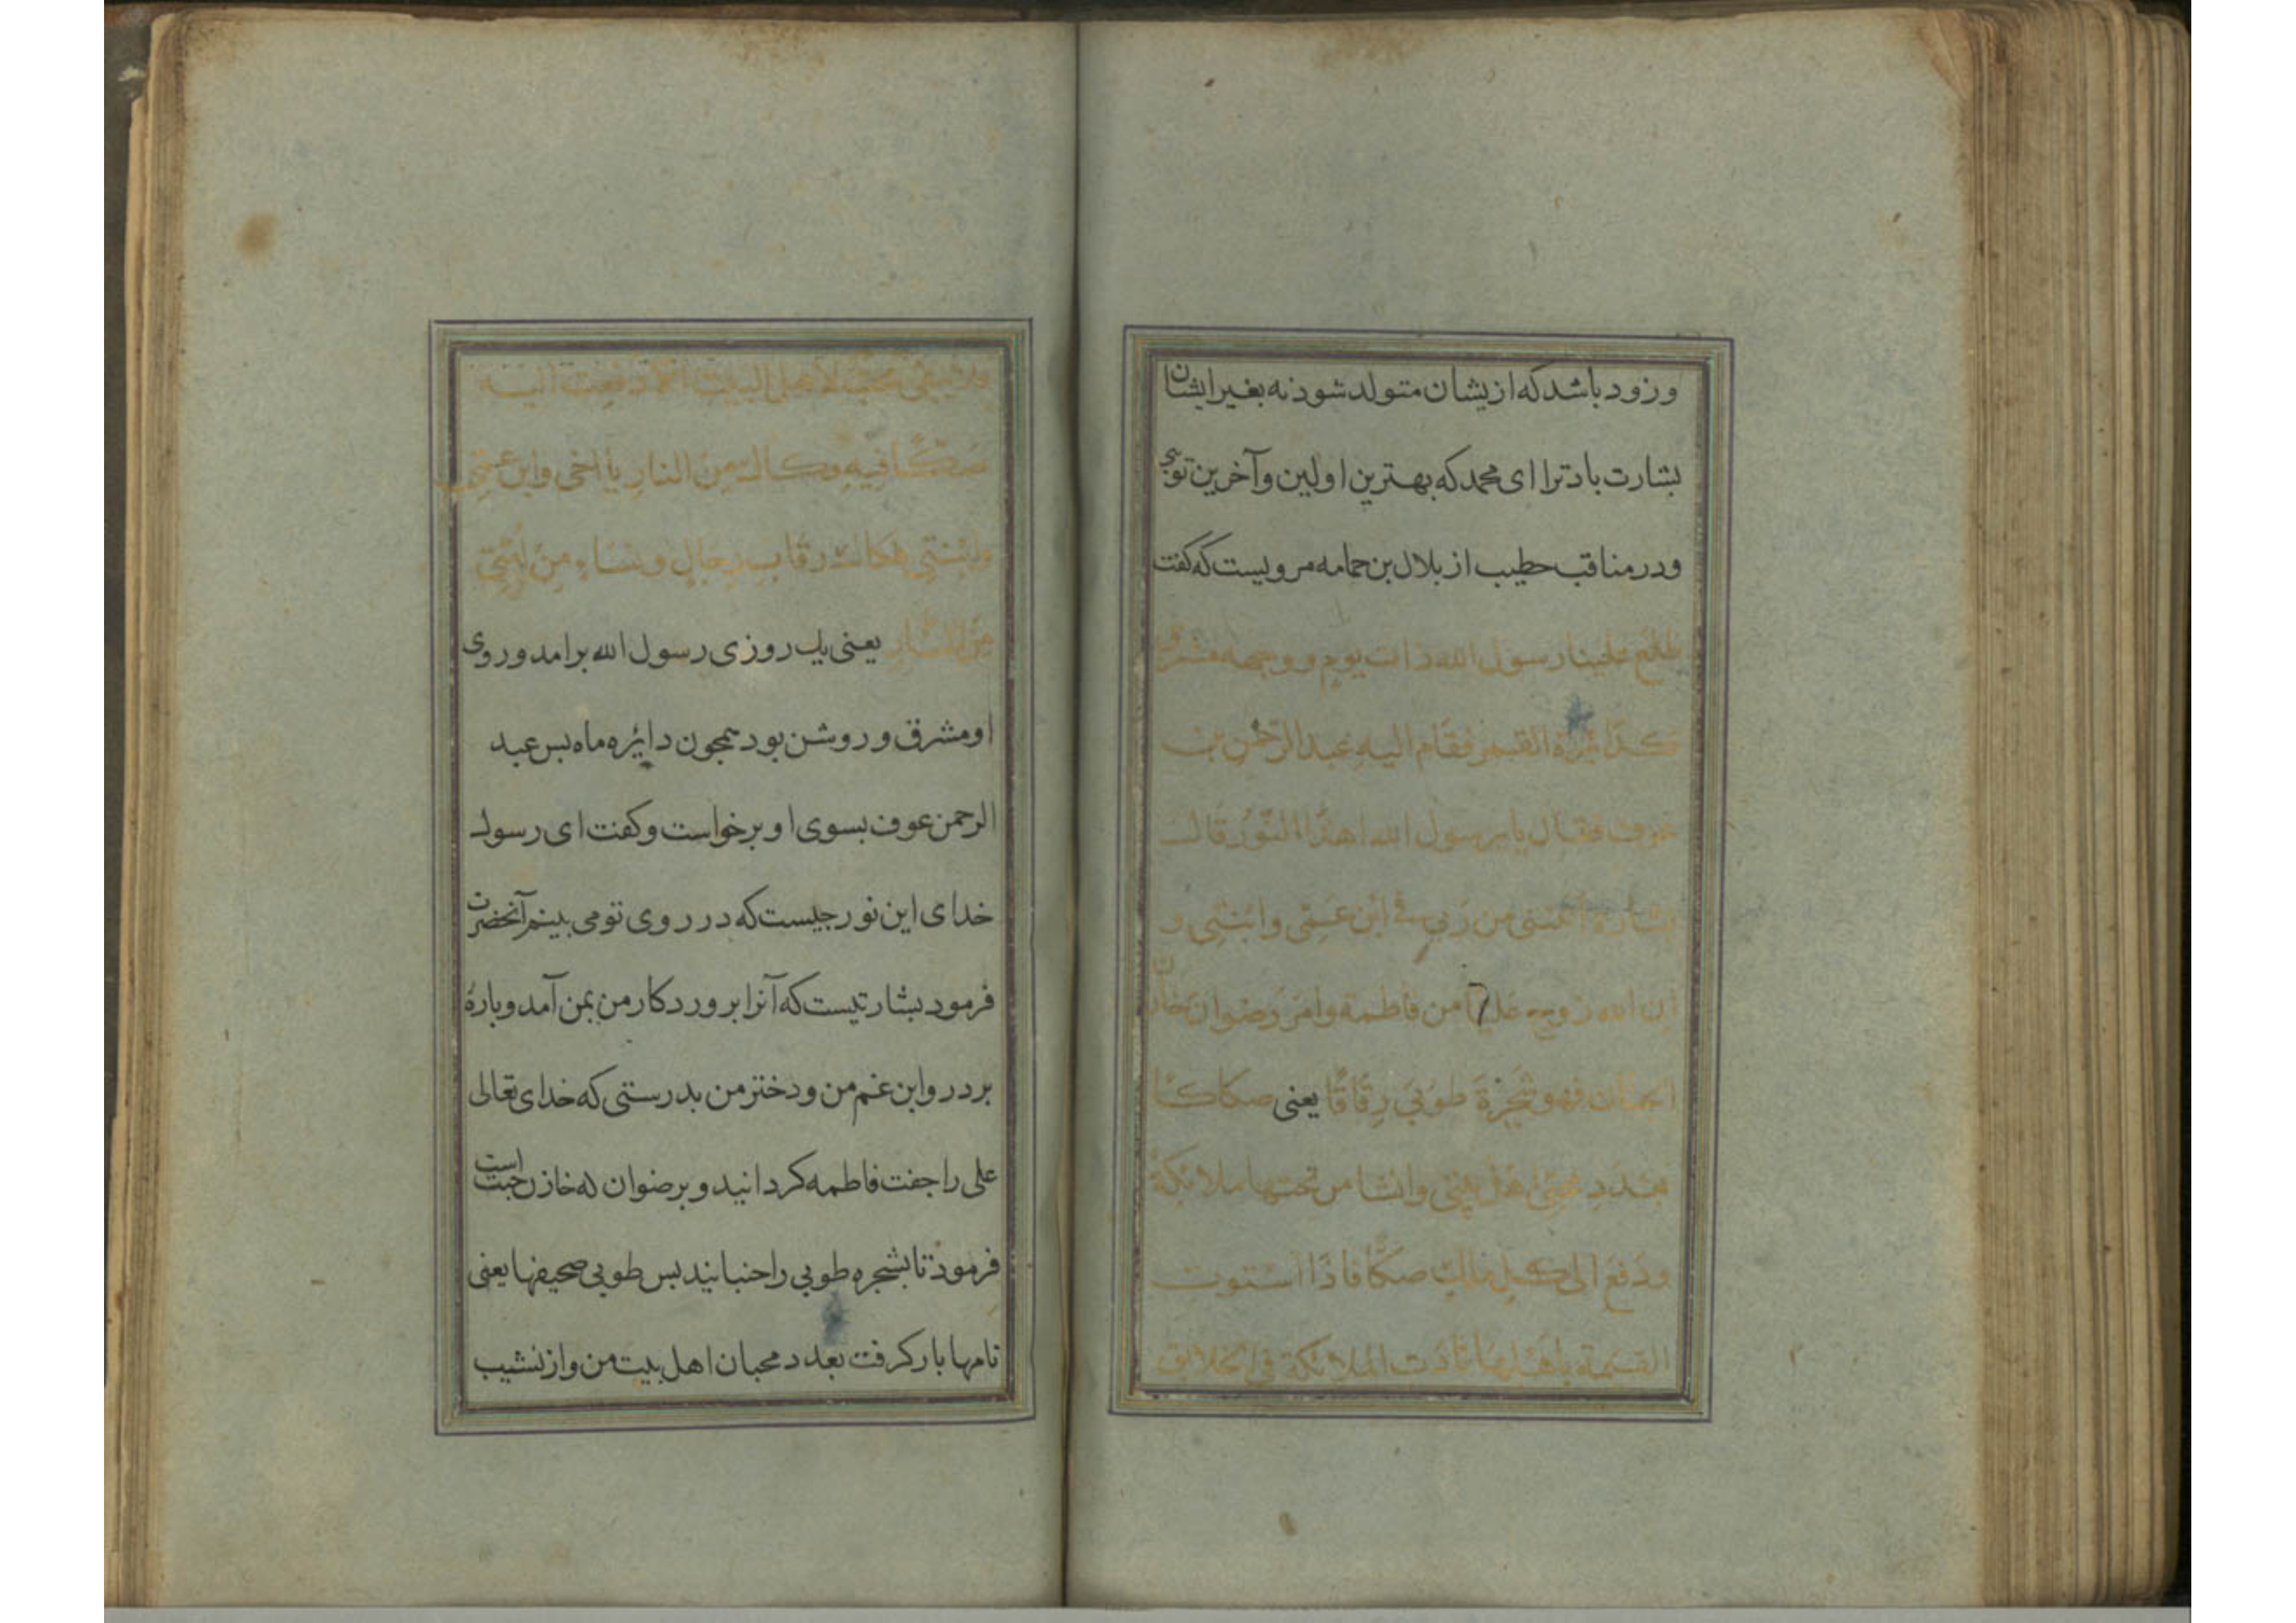 و زود باشد که ازیشان متولد شود نه بغیر ایشان
بشارت باد ترا ای محمد که بهترین اولین و آخرین تویی
و در مناقب خطیب از بلال بن حمامه مرویست که کفت
طلع علینا رسول الله ذات یوم و وجهه مشرق
کدائرة القمر فقام الیه عبد الرحمن بن
عوف فقال یا رسول الله هذا النور قال
بشارة اتتنی من ربی فی ابن عمی و ابنتی و
ان الله زوج علیا من فاطمة و امر رضوان خازن
الجنان فهو شجرة طوبی رقاقا یعنی صکاکا
بعدد محبی اهل بیتی و انشا من تحتها ملائکة
و دفع الی کل ملک صکا فاذا استوت
القیمة باهلها نادت الملائکة فی الخلائق
فلا یبقی محب لاهل البیت الا دفعت الیه
صکا فیه فکاکه من النار یا اخی و ابن عمی
و ابنتی فکاک رقاب رجال و نساء من امتی
من النار یعنی یک روزی رسول الله برامد و روی
او مشرق و روشن بود همجون دایره ماه بس عبد
الرحمن عوف بسوی او برخواست و کفت ای رسول
خدای این نور جیست که در روی تو می بینم آنحضرت
فرمود بشارتیست که آنرا برورد کار من بمن آمد و باره
بردر و ابن غم من و دختر من بدرستی که خدای تعالی
علی را جفت فاطمه کردانید و برضوان که خازن جنت است
فرمود تا بشجره طوبی را جنبانیند بس طوبی صحیفها یعنی
نامها بار کرفت بعدد محبان اهل بیت من و از نشیب